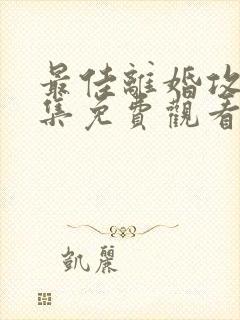 最佳離婚攻
集免費觀看
凱麗